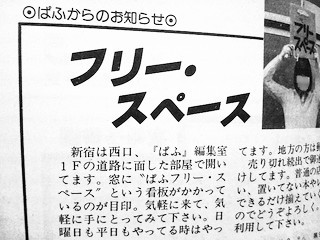 ◉ぱふからのお知らせ◉
フリー・
スペース
フリー
スペース
新宿は西口、『ぱふ』編集室
1Fの道路に面した部屋で開い
てます。窓に〝ぱふフリー・ス
ペース〟という看板がかかって
いるのが目印。気軽に来て、気
軽に手にとってみて下さい。日
曜日も平日もやってる時はやっ
てます。地方の方は郵
売り切れ続出で御迷
けしてます。普通の店
い、置いてない本やレ
できるだけ揃えていく
のでどうぞよろしく。
利用して下さい。